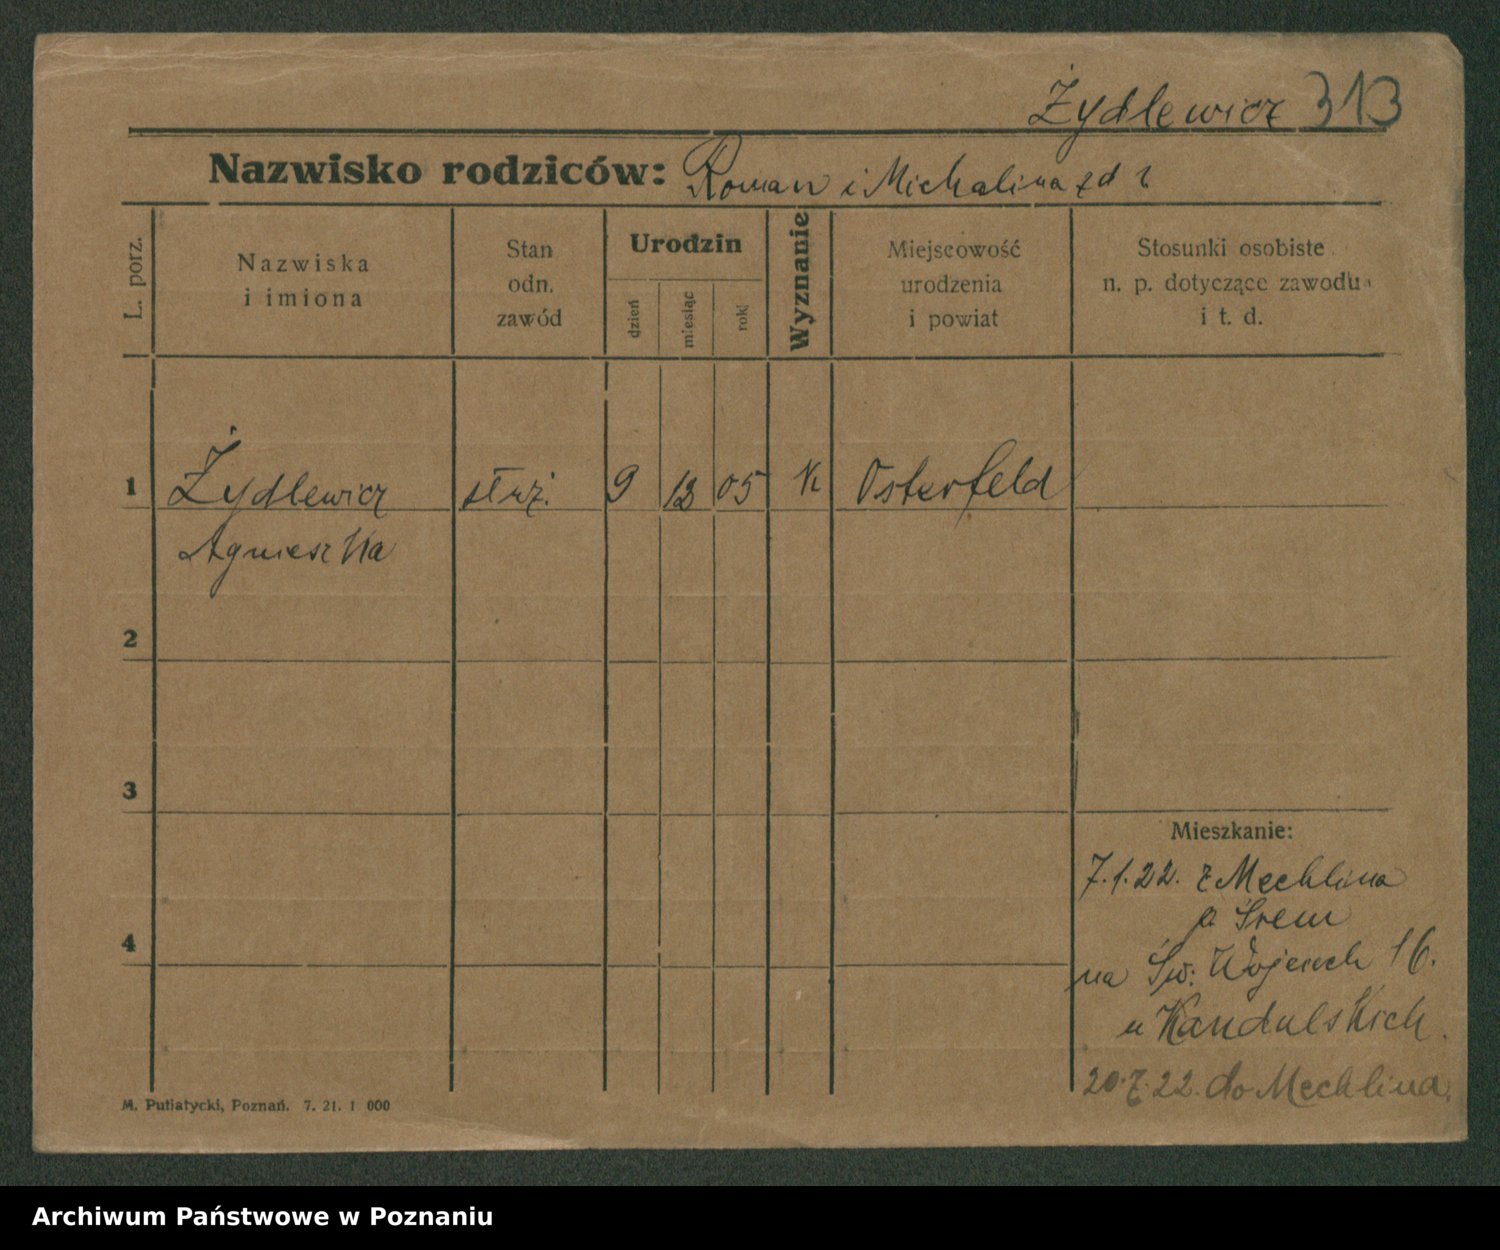 Żydlewicz 313
Nazwisko rodziców: Roman i Michalina z d
L. porz.
Nazwiska
i imiona
Stan
odn.
zawód
Urodzin
dzień
miesiąc
rok
Wyznanie
Miejscowość
urodzenia
i powiat
Stosunki osobiste
n. p. dotyczące zawodu
i t. d.
1 Żydlewicz służ. 9 12 05 K Osterfeld
Agnieszka
2
3
Mieszkanie:
7.1.22. z Mechlina
p. Śrem
4
na Św. Wojciech 16.
u Kandulskich.
20.7.22. do Mechlina.
M. Putiatycki, Poznań. 7. 21. 1 000
Archiwum Państwowe w Poznaniu